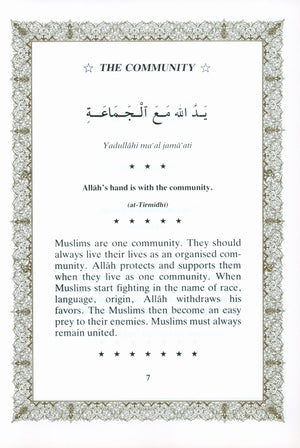 ☆ THE COMMUNITY ☆
يَدُ اللهِ مَعَ الْجَمَاعَةِ
Yadullāhi ma'al jamā'ati
★ ★ ★
Allāh's hand is with the community.
(at-Tirmidhi)
★ ★ ★ ★ ★
Muslims are one community. They should
always live their lives as an organised com-
munity. Allāh protects and supports them
when they live as one community. When
Muslims start fighting in the name of race,
language, origin, Allāh withdraws his
favors. The Muslims then become an easy
prey to their enemies. Muslims must always
remain united.
★ ★ ★ ★ ★ ★ ★
7